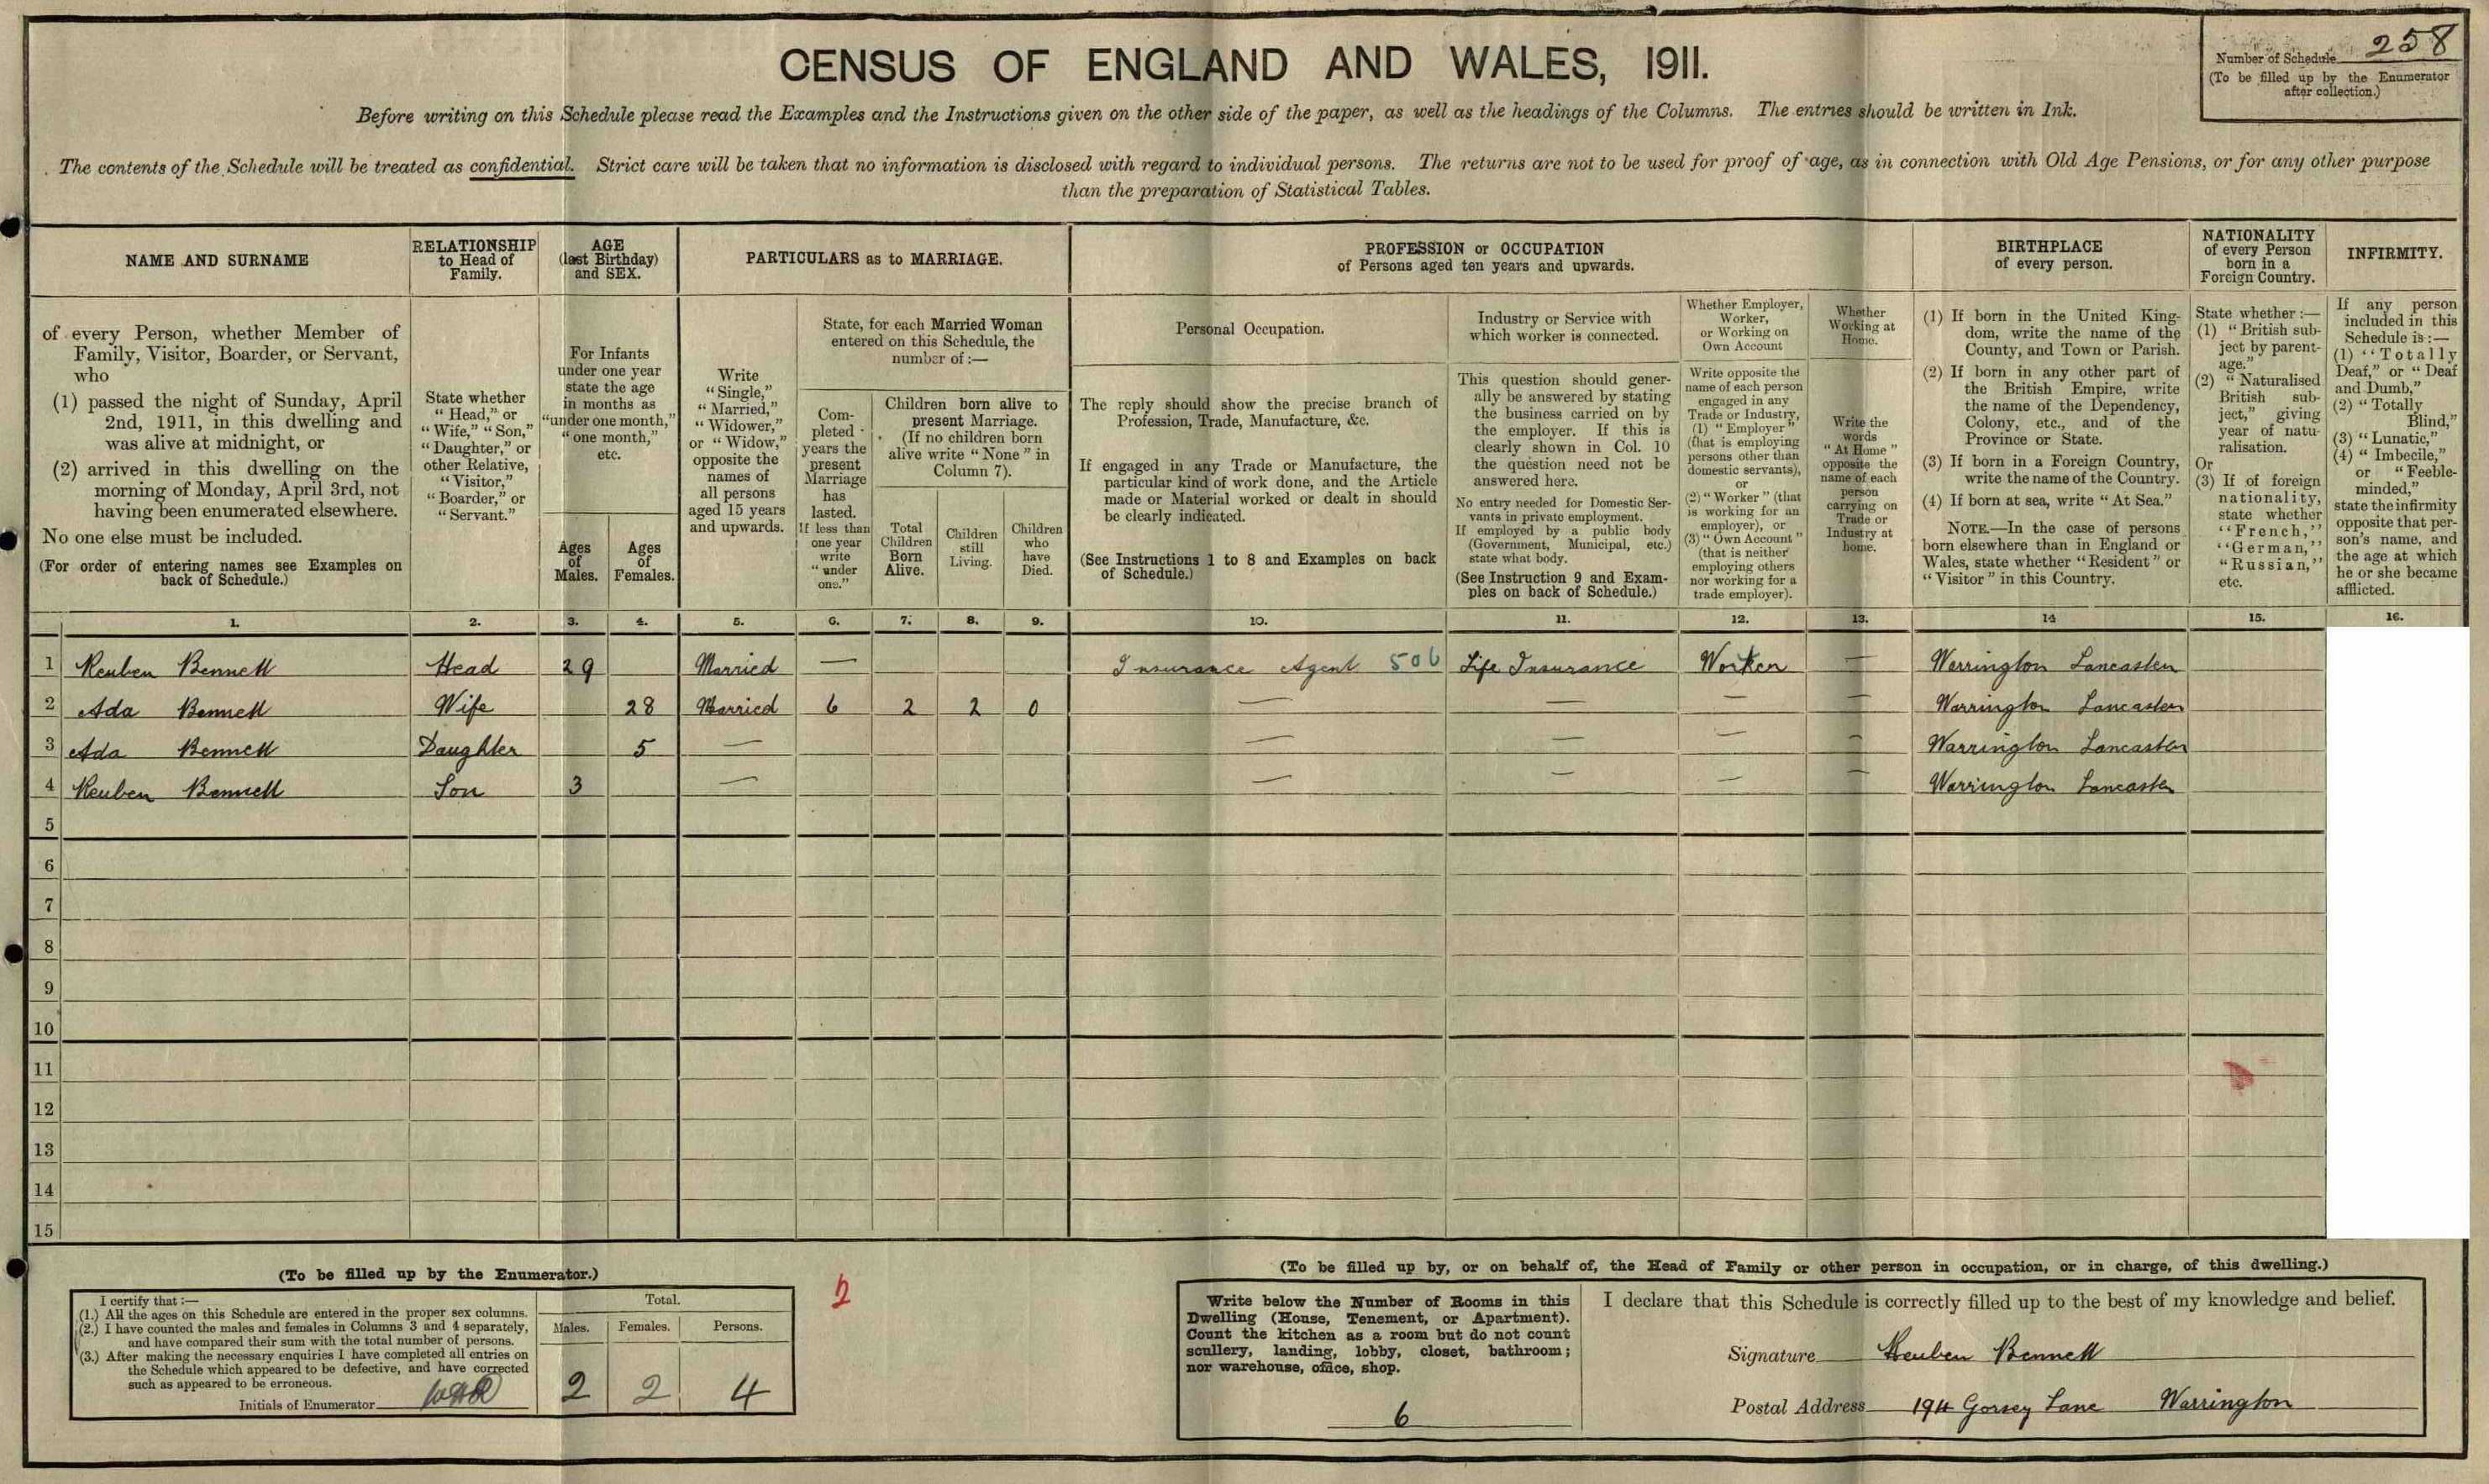 CENSUS OF ENGLAND AND WALES, 1911.
Number of Schedule 258
(To be filled up by the Enumerator
after collection.)
Before writing on this Schedule please read the Examples and the Instructions given on the other side of the paper, as well as the headings of the Columns. The entries should be written in Ink.
The contents of the Schedule will be treated as confidential. Strict care will be taken that no information is disclosed with regard to individual persons. The returns are not to be used for proof of age, as in connection with Old Age Pensions, or for any other purpose
than the preparation of Statistical Tables.
NAME AND SURNAME
of every Person, whether Member of
Family, Visitor, Boarder, or Servant,
who
(1) passed the night of Sunday, April
2nd, 1911, in this dwelling and
was alive at midnight, or
(2) arrived in this dwelling on the
morning of Monday, April 3rd, not
having been enumerated elsewhere.
No one else must be included.
(For order of entering names see Examples on
back of Schedule.)
RELATIONSHIP
to Head of
Family.
State whether
"Head," or
"Wife," "Son,"
"Daughter," or
other Relative,
"Visitor,"
"Boarder," or
"Servant."
AGE
(last Birthday)
and SEX.
For Infants
under one year
state the age
in months as
"under one month,"
"one month,"
etc.
Ages
of
Males.
Ages
of
Females.
PARTICULARS as to MARRIAGE.
Write
"Single,"
"Married,"
"Widower,"
or "Widow,"
opposite the
names of
all persons
aged 15 years
and upwards.
State, for each Married Woman
entered on this Schedule, the
number of :—
Com-
pleted
years the
present
Marriage
has
lasted.
If less than
one year
write
"under
one."
Children born alive to
present Marriage.
(If no children born
alive write "None" in
Column 7).
Total
Children
Born
Alive.
Children
still
Living.
Children
who
have
Died.
PROFESSION or OCCUPATION
of Persons aged ten years and upwards.
Personal Occupation.
The reply should show the precise branch of
Profession, Trade, Manufacture, &c.
If engaged in any Trade or Manufacture, the
particular kind of work done, and the Article
made or Material worked or dealt in should
be clearly indicated.
(See Instructions 1 to 8 and Examples on back
of Schedule.)
Industry or Service with
which worker is connected.
This question should gener-
ally be answered by stating
the business carried on by
the employer. If this is
clearly shown in Col. 10
the question need not be
answered here.
No entry needed for Domestic Ser-
vants in private employment.
If employed by a public body
(Government, Municipal, etc.)
state what body.
(See Instruction 9 and Exam-
ples on back of Schedule.)
Whether Employer,
Worker,
or Working on
Own Account
Write opposite the
name of each person
engaged in any
Trade or Industry,
(1) "Employer"
(that is employing
persons other than
domestic servants),
or
(2) "Worker" (that
is working for an
employer), or
(3) "Own Account"
(that is neither
employing others
nor working for a
trade employer).
Whether
Working at
Home.
Write the
words
"At Home"
opposite the
name of each
person
carrying on
Trade or
Industry at
home.
BIRTHPLACE
of every person.
(1) If born in the United King-
dom, write the name of the
County, and Town or Parish.
(2) If born in any other part of
the British Empire, write
the name of the Dependency,
Colony, etc., and of the
Province or State.
(3) If born in a Foreign Country,
write the name of the Country.
(4) If born at sea, write "At Sea."
NOTE.—In the case of persons
born elsewhere than in England or
Wales, state whether "Resident" or
"Visitor" in this Country.
NATIONALITY
of every Person
born in a
Foreign Country.
State whether :—
(1) "British sub-
ject by parent-
age."
(2) "Naturalised
British sub-
ject," giving
year of natu-
ralisation.
Or
(3) If of foreign
nationality,
state whether
"French,"
"German,"
"Russian,"
etc.
INFIRMITY.
If any person
included in this
Schedule is :—
(1) "Totally
Deaf," or "Deaf
and Dumb,"
(2) "Totally
Blind,"
(3) "Lunatic,"
(4) "Imbecile,"
or "Feeble-
minded,"
state the infirmity
opposite that per-
son's name, and
the age at which
he or she became
afflicted.
1. 2. 3. 4. 5. 6. 7. 8. 9. 10. 11. 12. 13. 14 15. 16.
1 Reuben Bennett Head 29 Married — Insurance Agent 506 Life Insurance Worker — Warrington Lancaster
2 Ada Bennett Wife 28 Married 6 2 2 0 — — — — Warrington Lancaster
3 Ada Bennett Daughter 5 — — — — — Warrington Lancaster
4 Reuben Bennett Son 3 — — — — — Warrington Lancaster
5
6
7
8
9
10
11
12
13
14
15
(To be filled up by the Enumerator.)
I certify that :—
(1.) All the ages on this Schedule are entered in the proper sex columns.
(2.) I have counted the males and females in Columns 3 and 4 separately,
and have compared their sum with the total number of persons.
(3.) After making the necessary enquiries I have completed all entries on
the Schedule which appeared to be defective, and have corrected
such as appeared to be erroneous.
Initials of Enumerator
Total.
Males. Females. Persons.
2 2 4
2
(To be filled up by, or on behalf of, the Head of Family or other person in occupation, or in charge, of this dwelling.)
Write below the Number of Rooms in this
Dwelling (House, Tenement, or Apartment).
Count the kitchen as a room but do not count
scullery, landing, lobby, closet, bathroom;
nor warehouse, office, shop.
6
I declare that this Schedule is correctly filled up to the best of my knowledge and belief.
Signature Reuben Bennett
Postal Address 194 Gorsey Lane Warrington